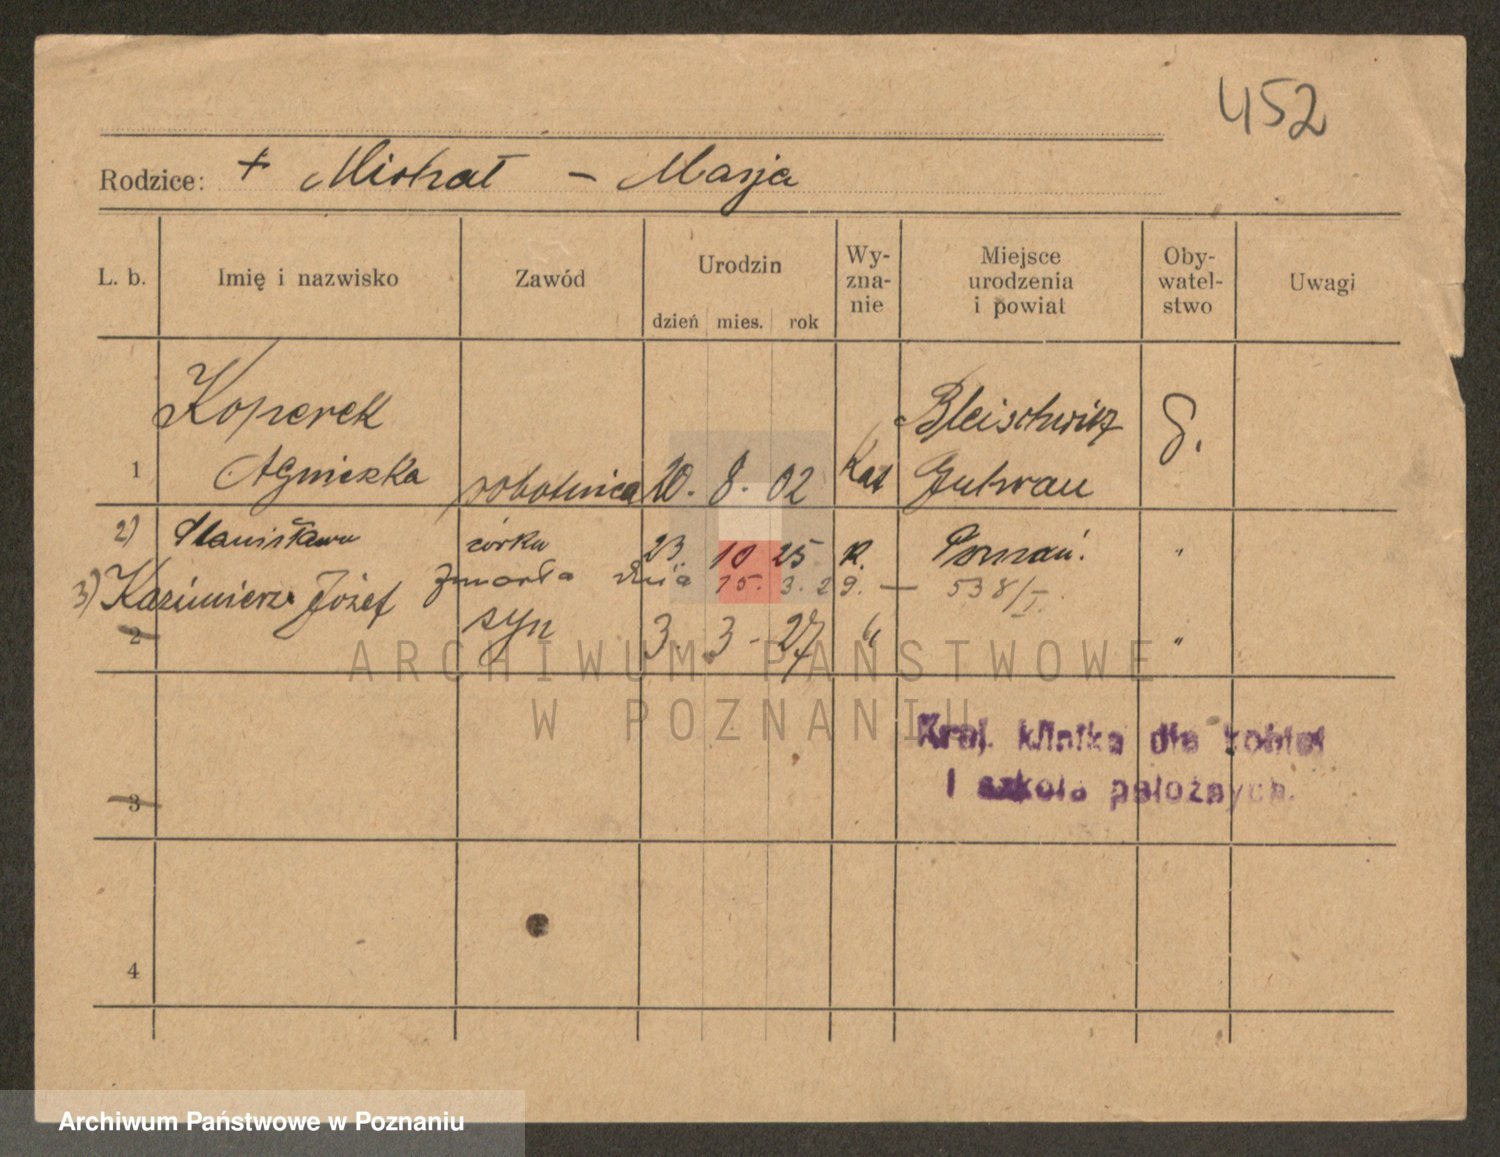 452
Rodzice: + Michał - Marja
L. b. Imię i nazwisko Zawód Urodzin dzień mies. rok Wy-zna-nie Miejsce urodzenia i powiat Oby-watel-stwo Uwagi
Koperek
Bleischwitz
1 Agnieszka robotnica 20. 8. 02 Kat Guhrau
2) Stanisława córka 23. 10 25 K. Poznań. "
zmarła dnia 15. 3. 29. — 538/I.
3) Kazimierz Józef
2 syn 3. 3 - 27 " "
ARCHIWUM PAŃSTWOWE
W POZNANIU
Kraj. klinika dla kobiet
i szkoła położnych.
3
4
Archiwum Państwowe w Poznaniu